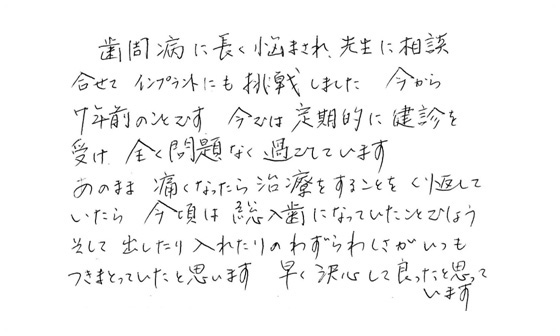 歯周病に長く悩まされ、先生に相談
合せて インプラントにも挑戦しました 今から
7年前のことです 今では定期的に健診を
受け 全く問題なく過ごしています
あのまま 痛くなったら治療をすることをくり返して
いたら 今頃は総入歯になっていたことでしょう
そして 出したり入れたりのわずらわしさがいつも
つきまとっていたと思います 早く決心して良かったと思って
います